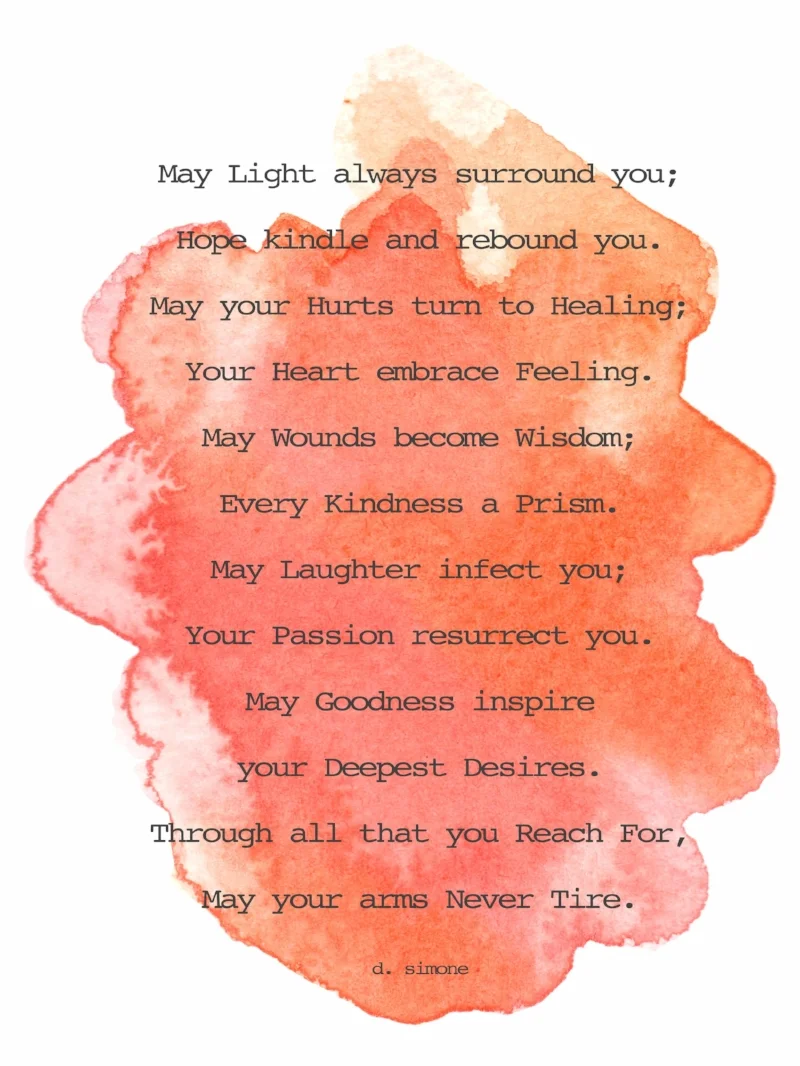 May Light always surround you;
Hope kindle and rebound you.
May your Hurts turn to Healing;
Your Heart embrace Feeling.
May Wounds become Wisdom;
Every Kindness a Prism.
May Laughter infect you;
Your Passion resurrect you.
May Goodness inspire
your Deepest Desires.
Through all that you Reach For,
May your arms Never Tire.
d. simone